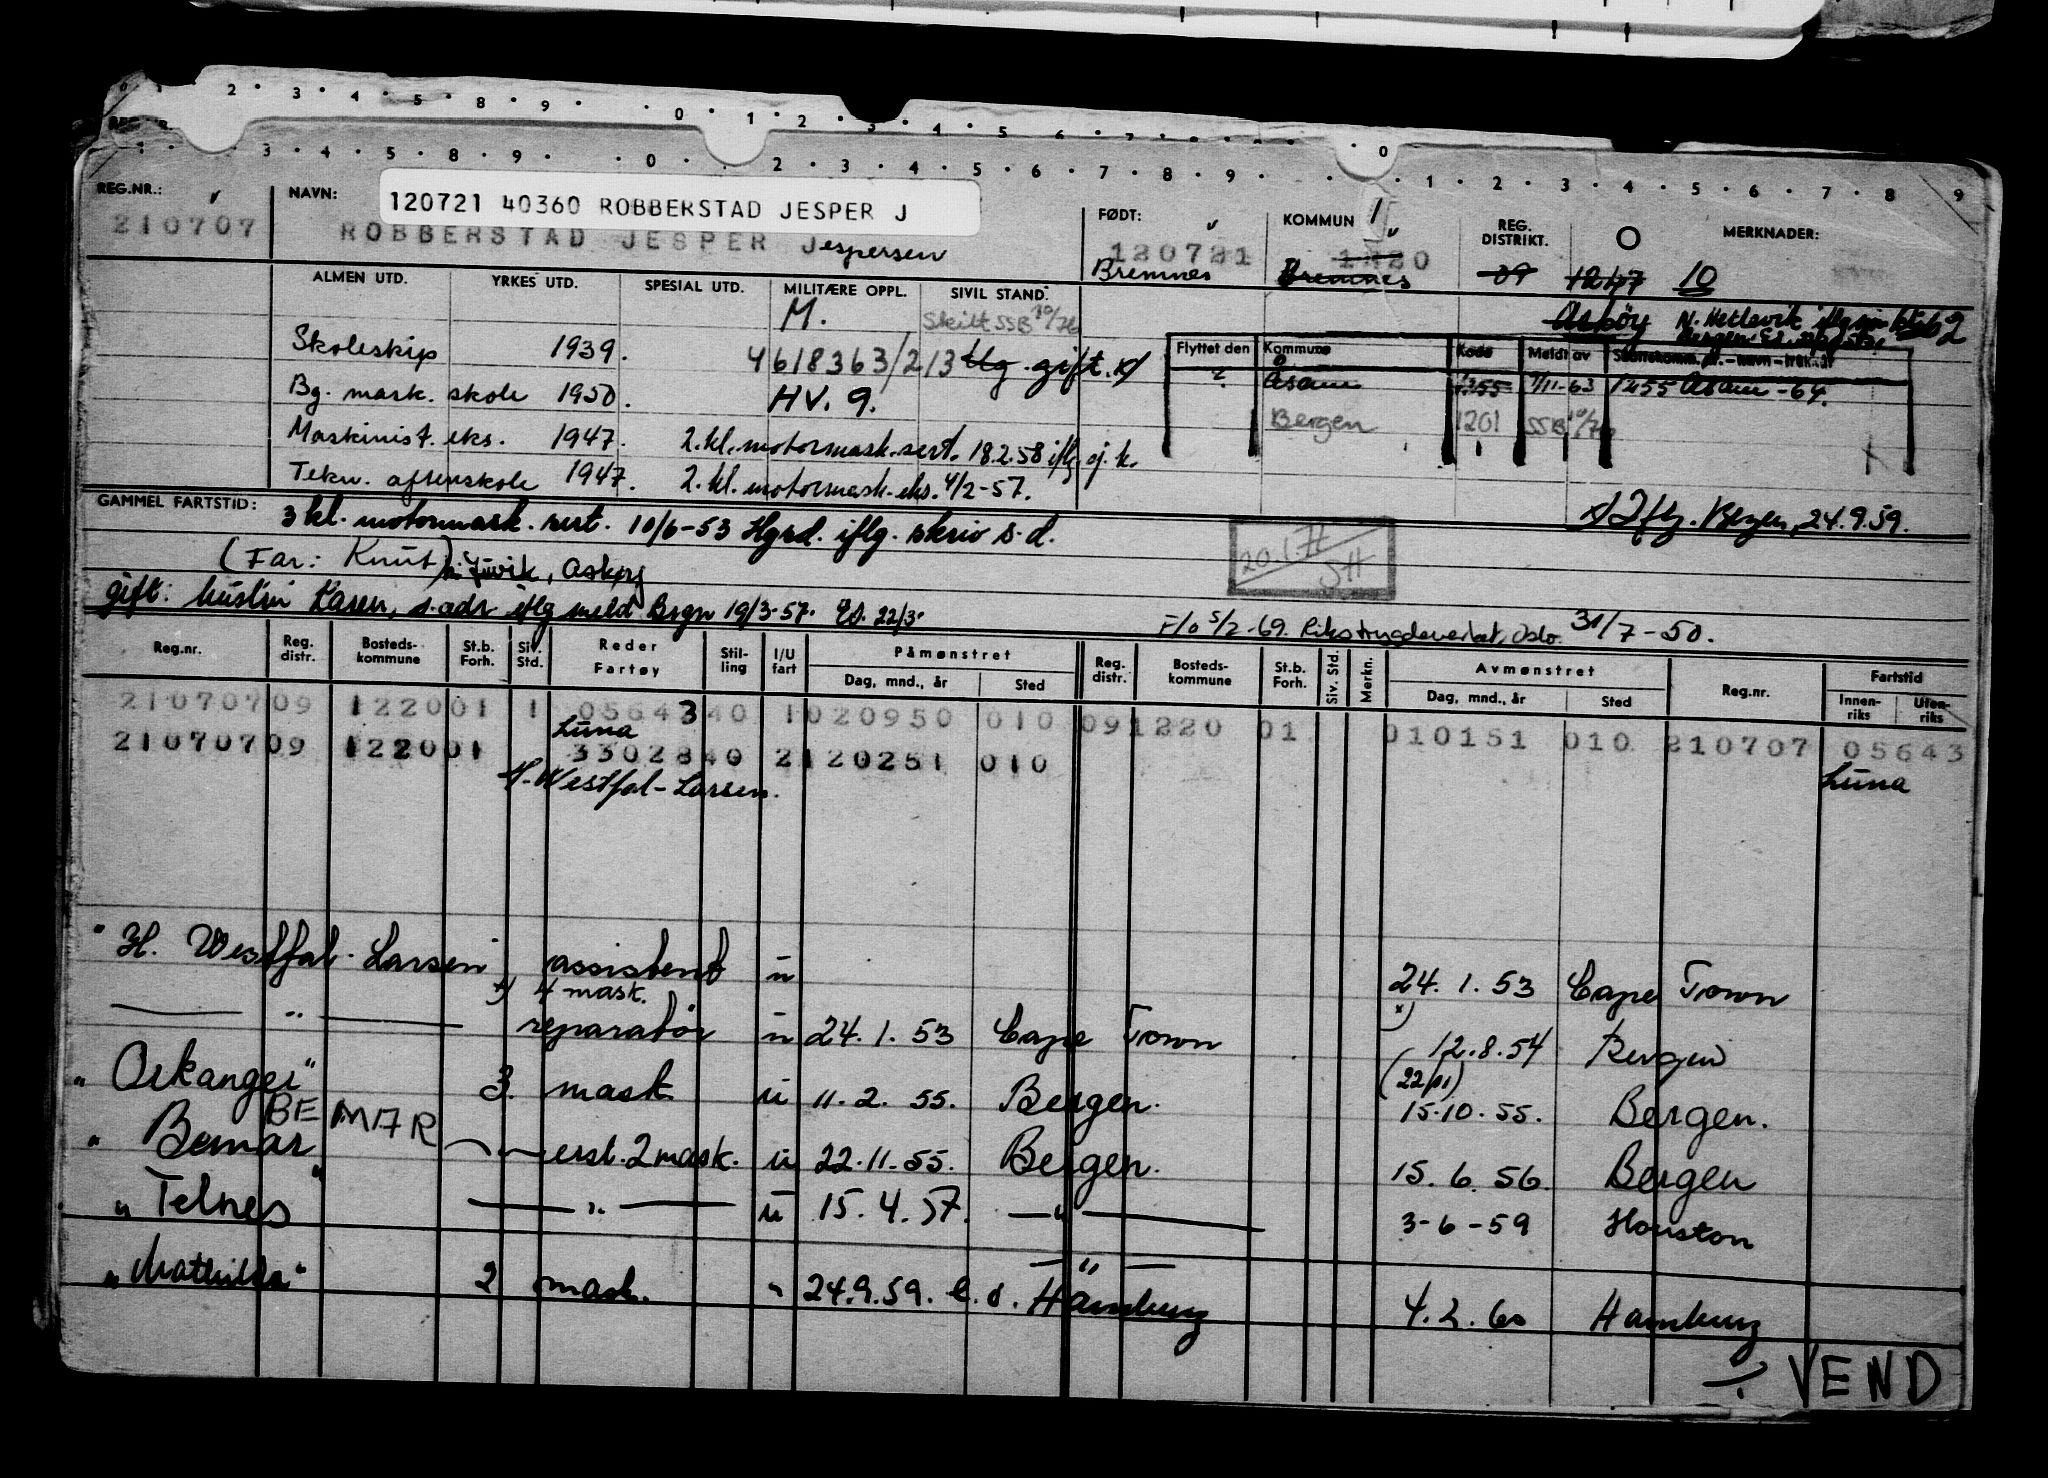 REG.NR.: NAVN: 120721 40360 ROBBERSTAD JESPER J FØDT: KOMMUN REG. DISTRIKT. O MERKNADER:
210707 ROBBERSTAD JESPER Jespersen 120721 1220
Bremnes Bremnes 09 1247 10
ALMEN UTD. YRKES UTD. SPESIAL UTD. MILITÆRE OPPL. SIVIL STAND.
M. Skilt SSB 10/76 Askøy N. Hetlevik
Skoleskip 1939. 4618363/213 Ug. gift. x/
Flyttet den Kommune Kode Meldt av Skattekomm. nr. – navn – inntekt
? Asane 1255 7/11-63 1255 Asane - 64.
Bg. mask. skole 1950. HV. 9.
Bergen 1201 SSB 10/76
Maskinist. eks. 1947. 2.kl. motormask. sert. 18.2.58 iflg oj. k.
Tekn. aftenskole 1947. 2. kl. motormask. eks. 4/2-57.
GAMMEL FARTSTID: 3 kl. motormask. sert. 10/6-53 Hgsd. iflg. skriv s.d. x/ Iflg. Bergen, 24.9.59.
(Far: Knut) Juvik, Askøy 20.1.71 SH
gift: hustru Karen, s.adr iflg meld Brgn 19/3-57. 22/3.
F/o 5/2-69. Rikstrygdeverket, Oslo. 31/7-50.
Reg.nr. Reg. distr. Bosteds-kommune St.b. Forh. Siv. Std. Reder Fartøy Stil-ling I/U fart Påmønstret Dag, mnd., år Sted Reg. distr. Bosteds-kommune St.b. Forh. Siv. Std. Merkn. Avmønstret Dag, mnd., år Sted Reg.nr. Fartstid Innen-riks Uten-riks
210707 09 1220 01 1 05643 40 1 020950 010 09 1220 01 010151 010 210707 05643
Luna Luna
210707 09 1220 01 33028 40 2 120251 010
H. Westfal-Larsen.
"H. Westfal-Larsen" assistent u 24.1.53 Cape Town
x) 4 mask. x)
— " — reparatør u 24.1.53 Cape Town 12.8.54 Bergen
(22/11)
"Orkanger" 3. mask. u 11.2.55. Bergen. 15.10.55. Bergen.
BEMAR
"Bemar" — " — erst. 2 mask. u 22.11.55. Bergen. 15.6.56. Bergen
"Telnes" — " — u 15.4.57. — " — 3-6-59 Houston
— " —
"Mathilda" 2 mask. " 24.9.59. e.d. Hamburg 4.2.60 Hamburg
./. VEND